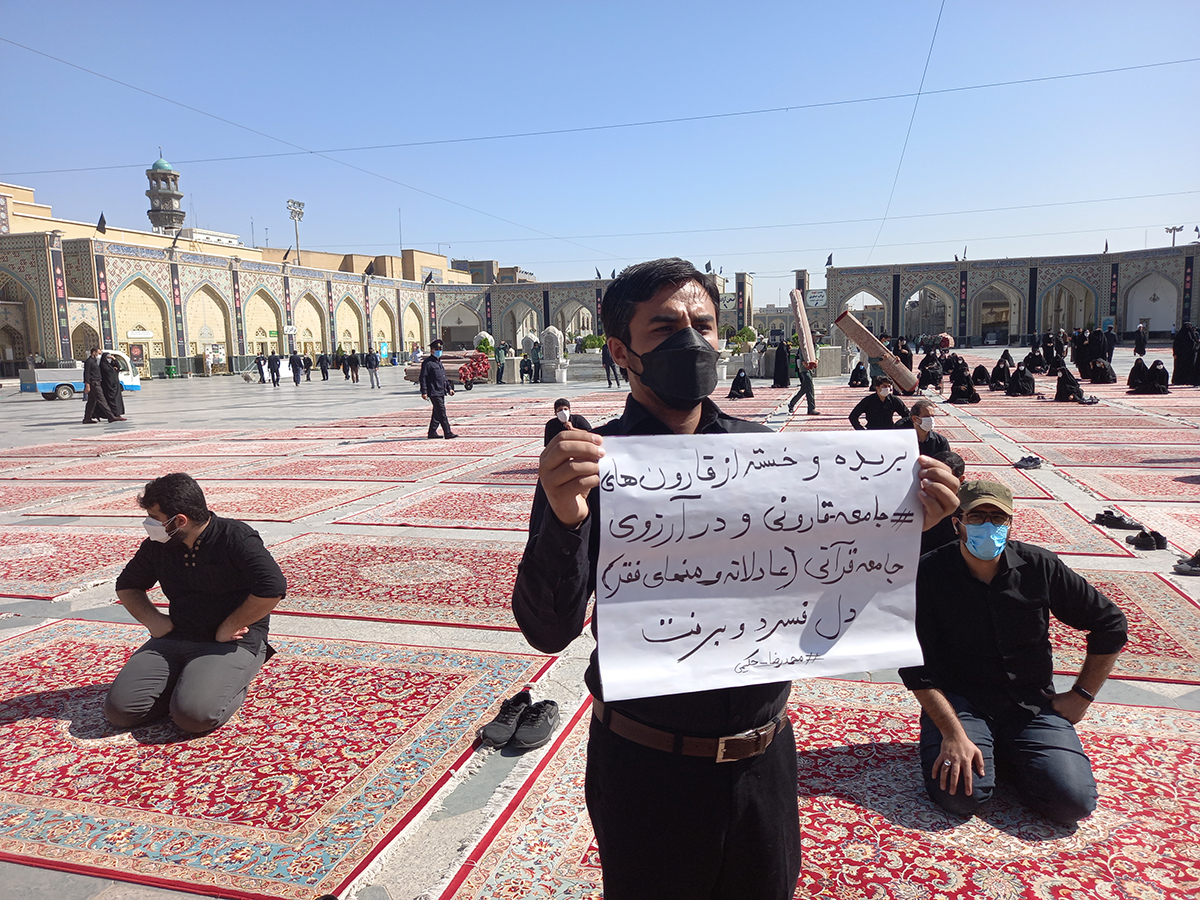 بریده و خسته از قارون‌های
#جامعه_قارونی و در آرزوی
جامعه قرآنی (عادلانه و منهای فقر)
دل فسرد و برفت
#محمدرضا_حکیمی